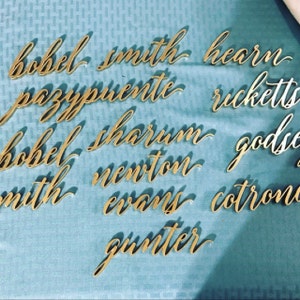 bobel smith hearn
pazypuente ricketts
bobel sharum godsey
smith newton
evans cotrone
gunter